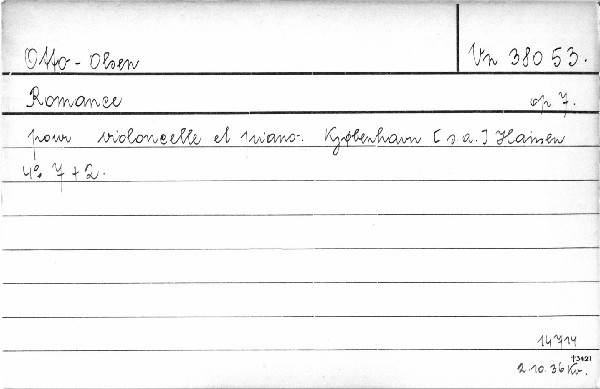 Otto - Olsen
Vn 38053.
Romance op 7.
pour violoncelle et piano. Kjøbenhavn [s.a.] Hansen
4° 7 + 2.
14714
†3421
2.10.36 Kv.